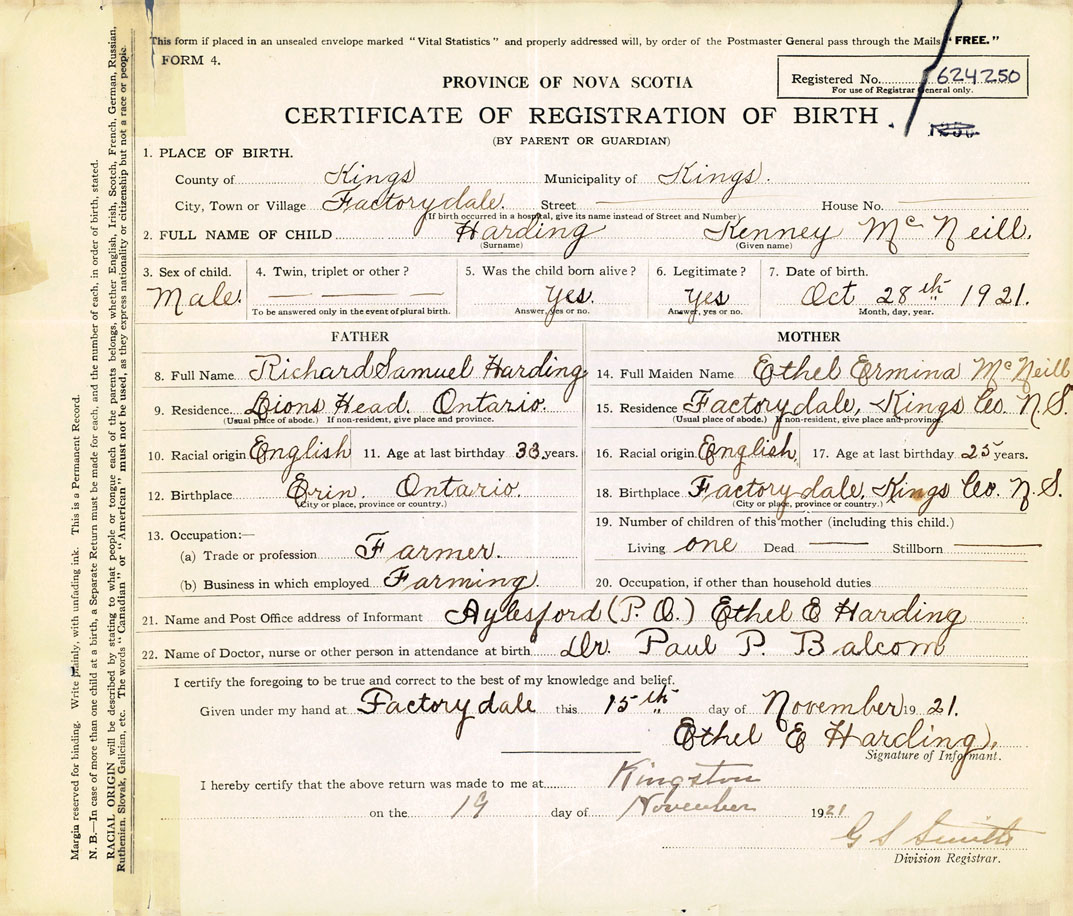 This form if placed in an unsealed envelope marked "Vital Statistics" and properly addressed will, by order of the Postmaster General pass through the Mails "FREE."
FORM 4.
PROVINCE OF NOVA SCOTIA
Registered No. 624250
For use of Registrar General only.
CERTIFICATE OF REGISTRATION OF BIRTH.
(BY PARENT OR GUARDIAN)
1. PLACE OF BIRTH.
County of Kings Municipality of Kings.
City, Town or Village Factorydale. Street House No.
(If birth occurred in a hospital, give its name instead of Street and Number)
2. FULL NAME OF CHILD Harding Kenney McNeill.
(Surname) (Given name)
3. Sex of child. 4. Twin, triplet or other? 5. Was the child born alive? 6. Legitimate? 7. Date of birth.
Male. — — — Yes. Yes Oct 28th 1921.
To be answered only in the event of plural birth. Answer, yes or no. Answer, yes or no. Month, day, year.
FATHER MOTHER
8. Full Name Richard Samuel Harding 14. Full Maiden Name Ethel Ermina McNeill
9. Residence Lions Head. Ontario. 15. Residence Factorydale, Kings Co. N.S.
(Usual place of abode.) If non-resident, give place and province. (Usual place of abode.) If non-resident, give place and province.
10. Racial origin English 11. Age at last birthday 33 years. 16. Racial origin English. 17. Age at last birthday 25 years.
12. Birthplace Erin. Ontario. 18. Birthplace Factorydale, Kings Co. N.S.
(City or place, province or country.) (City or place, province or country.)
13. Occupation:— 19. Number of children of this mother (including this child.)
(a) Trade or profession Farmer. Living one Dead — Stillborn —
(b) Business in which employed Farming. 20. Occupation, if other than household duties
21. Name and Post Office address of Informant Aylesford (P.O.) Ethel E Harding
22. Name of Doctor, nurse or other person in attendance at birth Dr. Paul P. Balcom
I certify the foregoing to be true and correct to the best of my knowledge and belief.
Given under my hand at Factorydale this 15th day of November 1921.
Ethel E Harding.
Signature of Informant.
I hereby certify that the above return was made to me at Kingston
on the 19 day of November 1921
G S Smith
Division Registrar.
Margin reserved for binding. Write plainly, with unfading ink. This is a Permanent Record.
N. B.—In case of more than one child at a birth, a Separate Return must be made for each, and the number of each, in order of birth, stated.
RACIAL ORIGIN will be described by stating to what people or tongue each of the parents belongs, whether English, Irish, Scotch, French, German, Russian,
Ruthenian, Slovak, Galician, etc. The words "Canadian" or "American" must not be used, as they express nationality or citizenship but not a race or people.